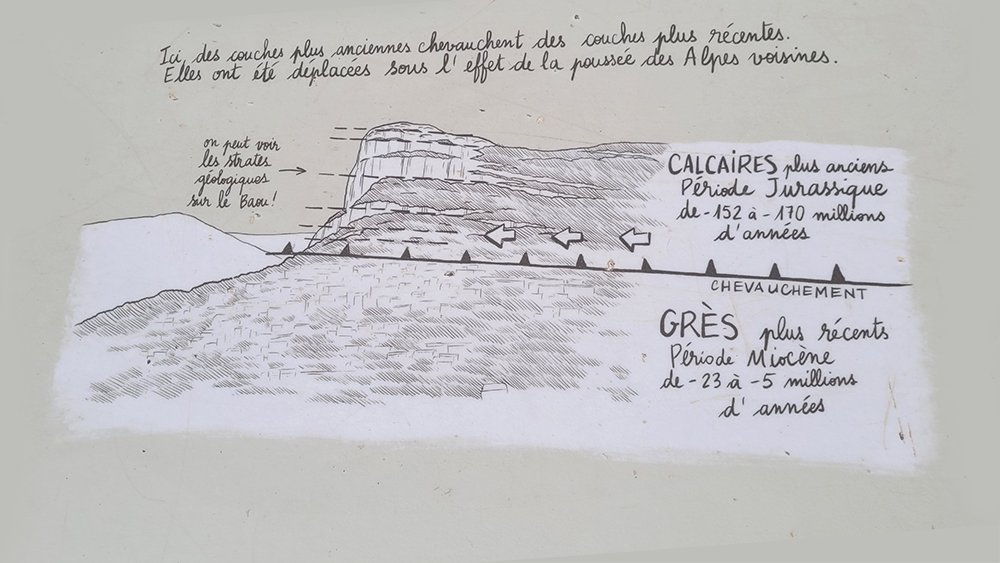 Ici, des couches plus anciennes chevauchent des couches plus récentes.
Elles ont été déplacées sous l'effet de la poussée des Alpes voisines.
on peut voir
les strates
géologiques
sur le Baou!
CALCAIRES plus anciens
Période Jurassique
de -152 à -170 millions
d'années
CHEVAUCHEMENT
GRÈS plus récents
Période Miocène
de -23 à -5 millions
d'années